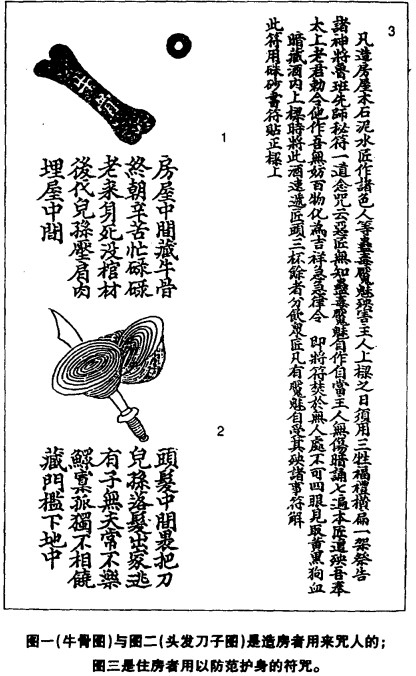 3
凡造房屋木石泥水匠作諸色人等蠱毒魘魅殃害主人上樑之日須用三牲福禮橫扁一架祭告
諸神將魯班先師秘符一道念咒云惡匠無知蠱毒魘魅自作自當主人無傷暗誦七遍本匠遭殃吾奉
太上老君勅令他作吾無妨百物化為吉祥急急律令　即將符焚於無人處不可四眼見取黃黑狗血
暗藏酒內上樑時將此酒連遞匠頭三杯餘者分飲眾匠凡有魘魅自受其殃諸事符解
此符用硃砂書符貼正樑上
1
牛骨
房屋中間藏牛骨
終朝辛苦忙碌碌
老來身死沒棺材
後代兒孫壓肩肉
埋屋中間
2
頭髮中間裹把刀
兒孫落髮出家逃
有子無夫常不樂
鰥寡孤獨不相饒
藏門檻下地中
图一(牛骨图)与图二(头发刀子图)是造房者用来咒人的;
图三是住房者用以防范护身的符咒。